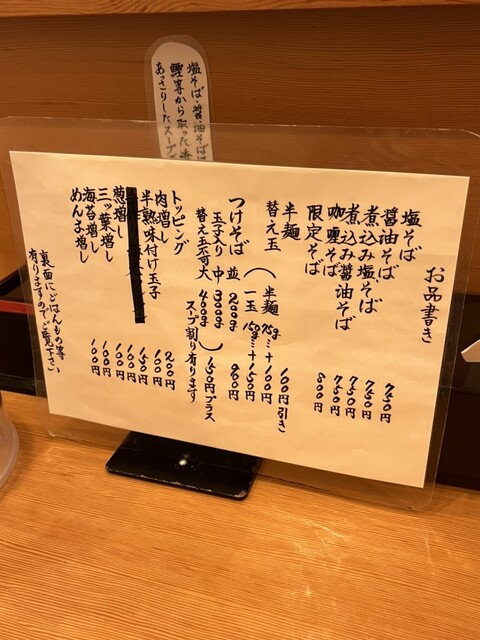 塩そば・醤油そばは
鰹等から取った
あっさりしたスープ
お品書き
塩そば 750円
醤油そば 750円
煮込み塩そば 750円
煮込み醤油そば 750円
咖喱そば 800円
限定そば
半麺 100円引き
替え玉（半麺 75g…＋100円
一玉 150g…＋150円）
つけそば 並 200g 900円
玉子入り 中 300g
替え玉不可 大 400g 150円プラス
スープ割り有ります
トッピング
肉増し 200円
半熟味付け玉子 100円
150円
葱増し 100円
三ッ葉増し 100円
海苔増し 100円
めんま増し 100円
裏面にごはんもの等
有りますのでご覧下さい